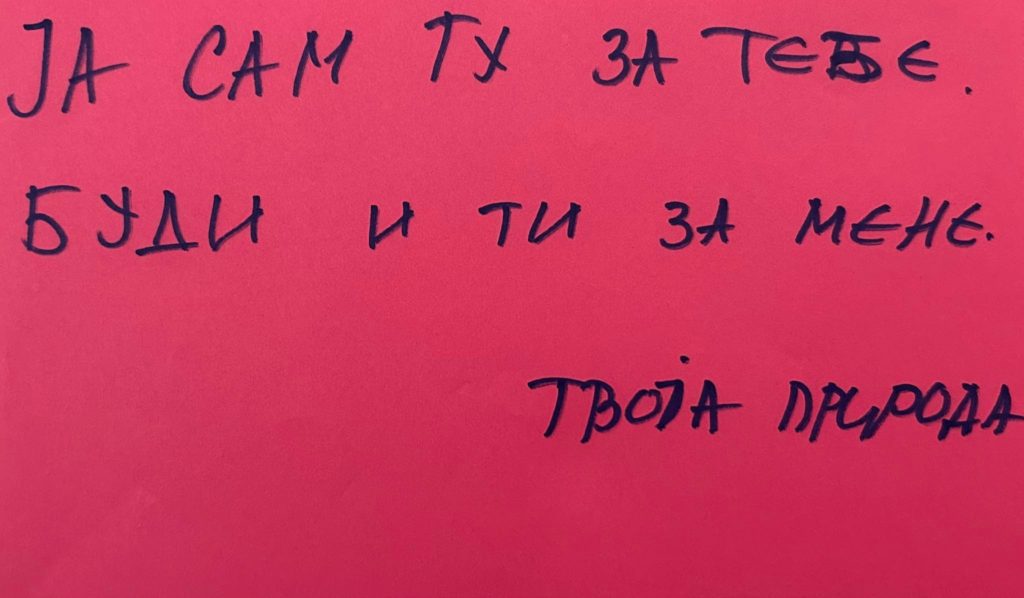 ЈА САМ ТУ ЗА ТЕБЕ.
БУДИ И ТИ ЗА МЕНЕ.
ТВОЈА ПРИРОДА